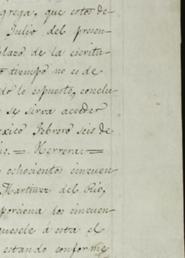 grega, que estos de
Julio del presen-
plazo de la escritu-
o tiempo no es de
do lo espuesto, conclu-
se sirva acceder
exico Febrero seis de
= Herrera =
ochocientos cincuen-
Martinez del Rio,
porciona los cincuen-
quesele á esta el
estando conforme